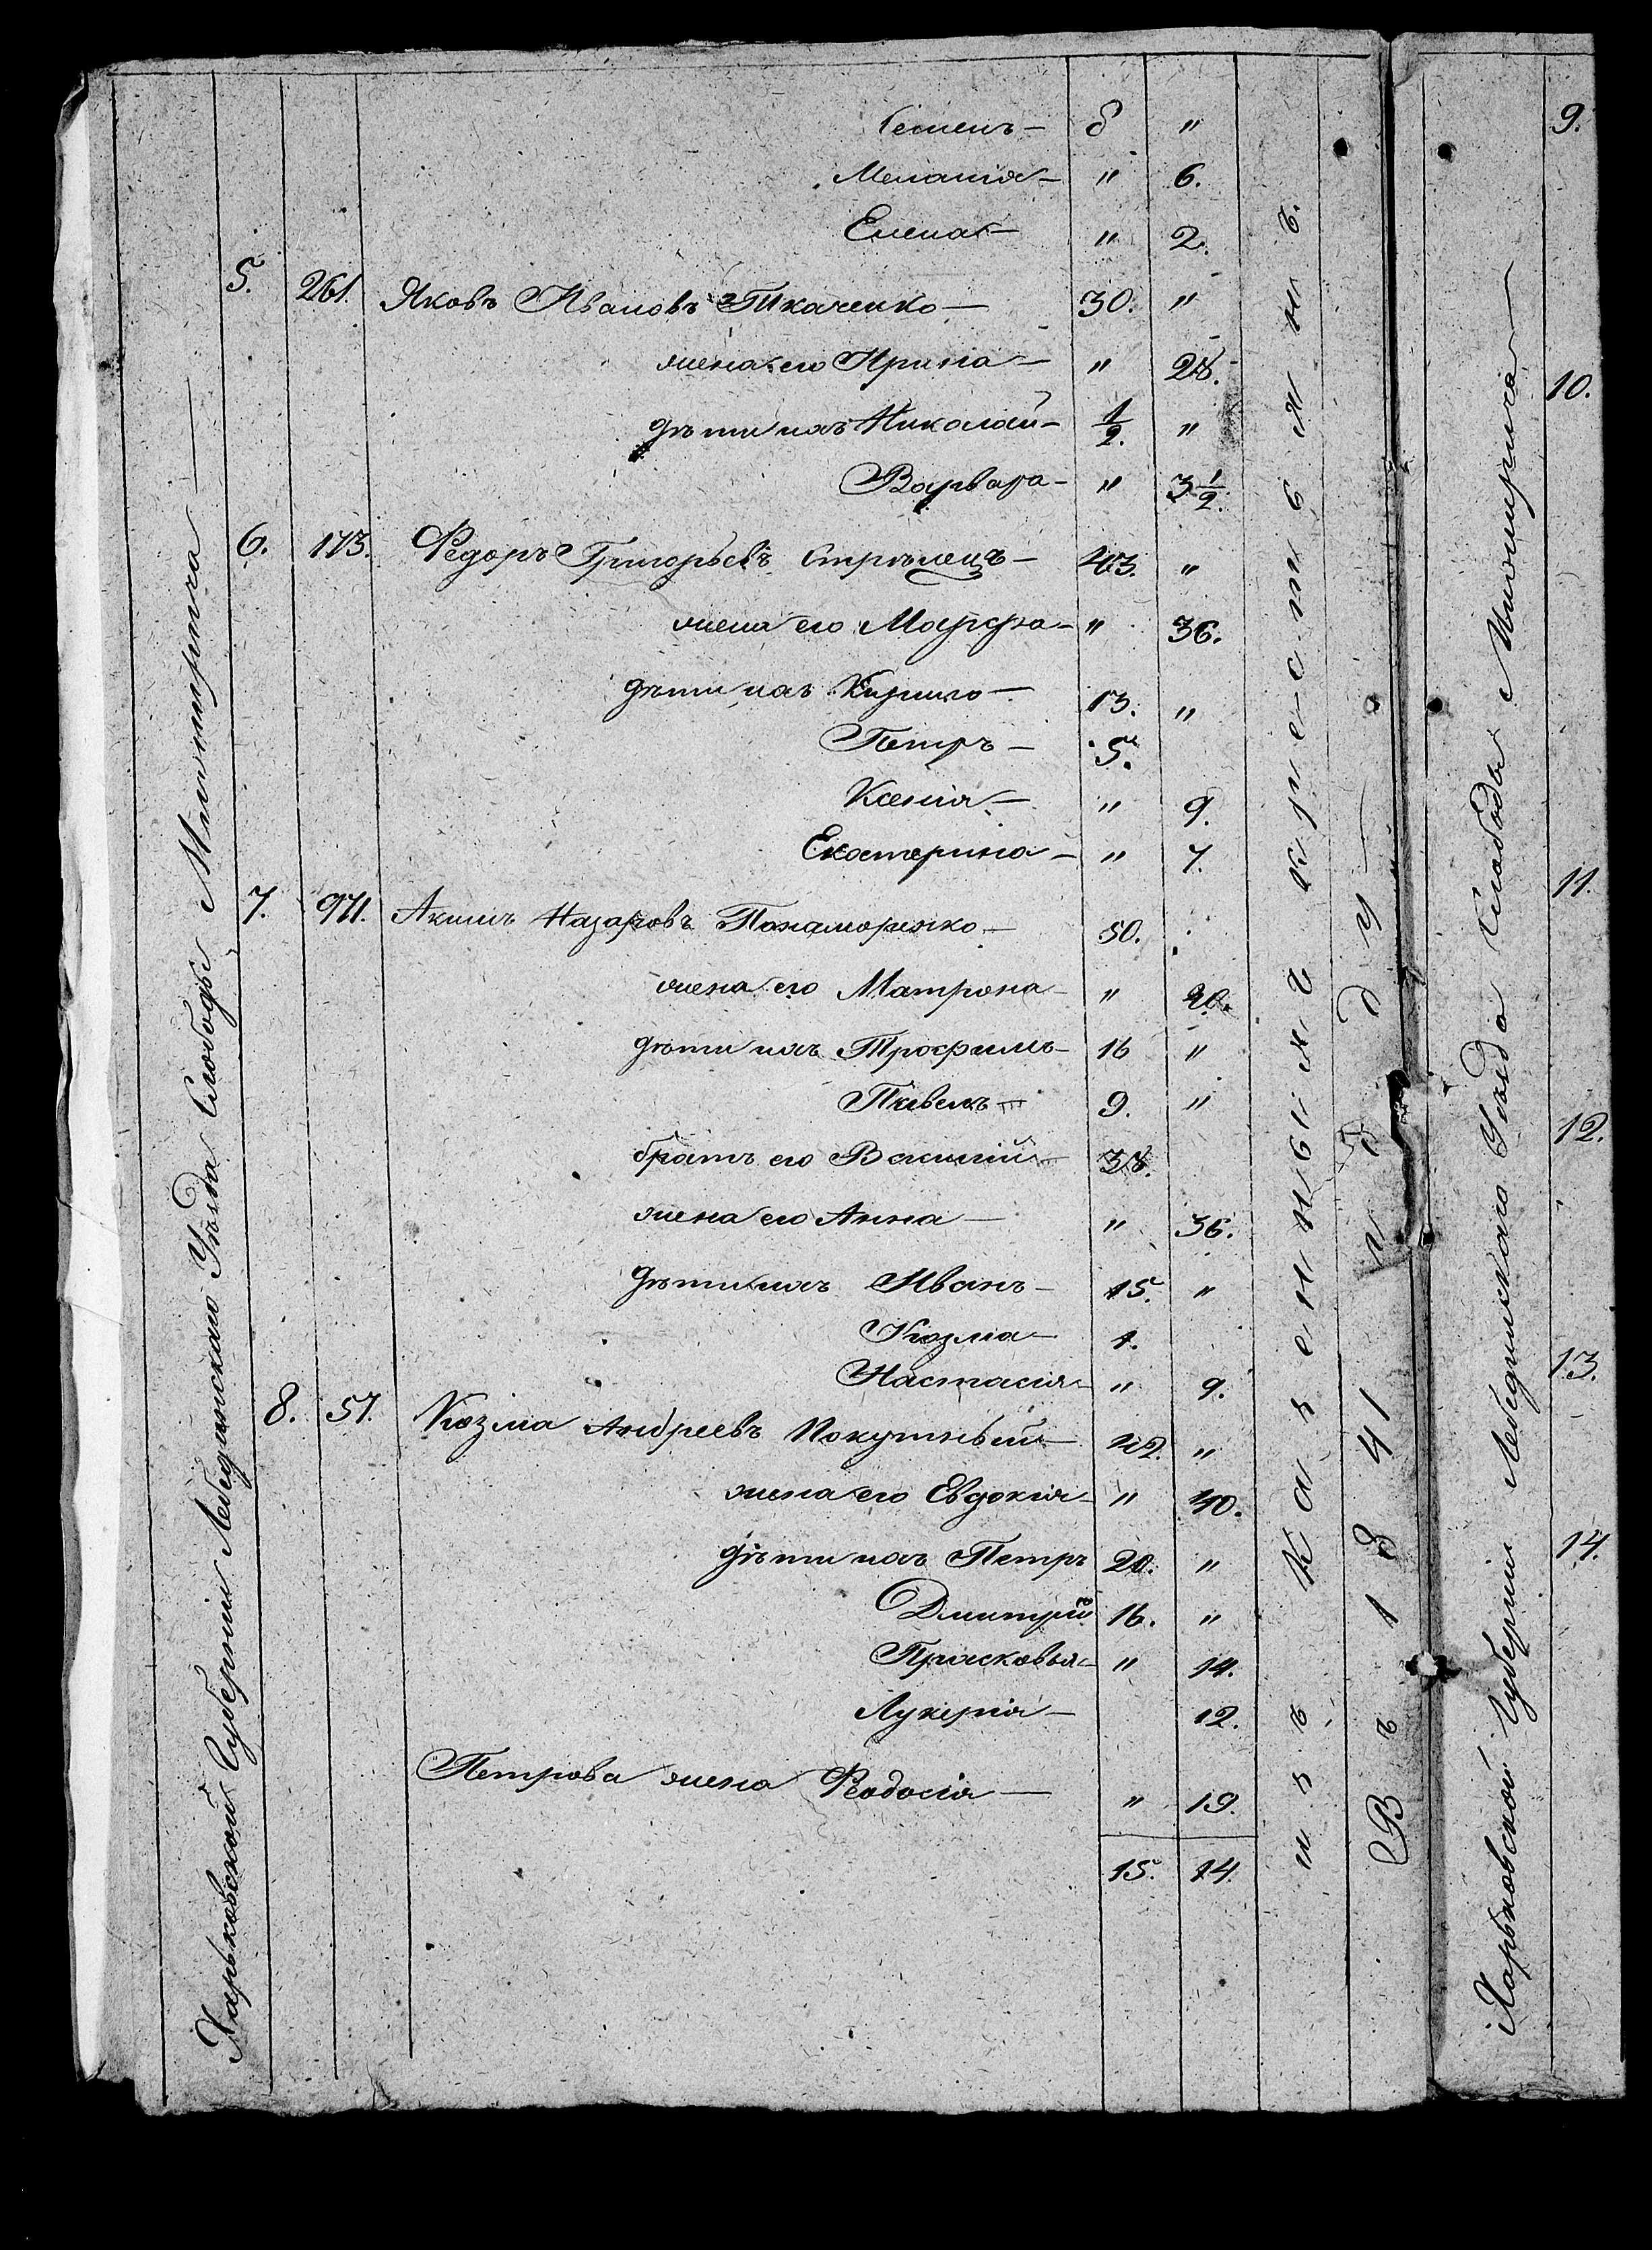 Харьковской Губерніи Лебединскаго Уѣзда Слободы
Семенъ — 8 "
Меланія — " 6.
Елена — " 2.
5. 261. Яковъ Ивановъ Ткаченко — 30. "
жена его Ирина — " 28.
дѣти ихъ Николай — 1/2. "
Варвара — " 3 1/2.
6. 173. Федоръ Григорьевъ Стрѣлецъ — 43. "
жена его Марфа — " 36.
дѣти ихъ Кирило — 13. "
Петръ — 5.
Ксенія — " 9.
Екатерина — " 7.
7. 971. Акимъ Назаровъ Понаморенко — 50.
жена его Матрона — " 40.
дѣти ихъ Трофимъ — 16 "
Павелъ — 9. "
братъ его Василій — 38.
жена его Анна — " 36.
дѣти ихъ Иванъ — 15. "
Козма — 1.
Настасія — " 9.
8. 57. Козма Андреевъ Покутный — 42. "
жена его Евдокія — " 40.
дѣти ихъ Петръ 20. "
Дмитрій 16. "
Прасковья — " 14.
Лукерія — 12.
Петрова жена Феодосія — " 19.
15. 14.
изъ Казенныхъ крестьянъ.
Въ 1841 году —
Харьковской Губерніи Лебединскаго Уѣзда Слобода
9.
10.
11.
12.
13.
14.